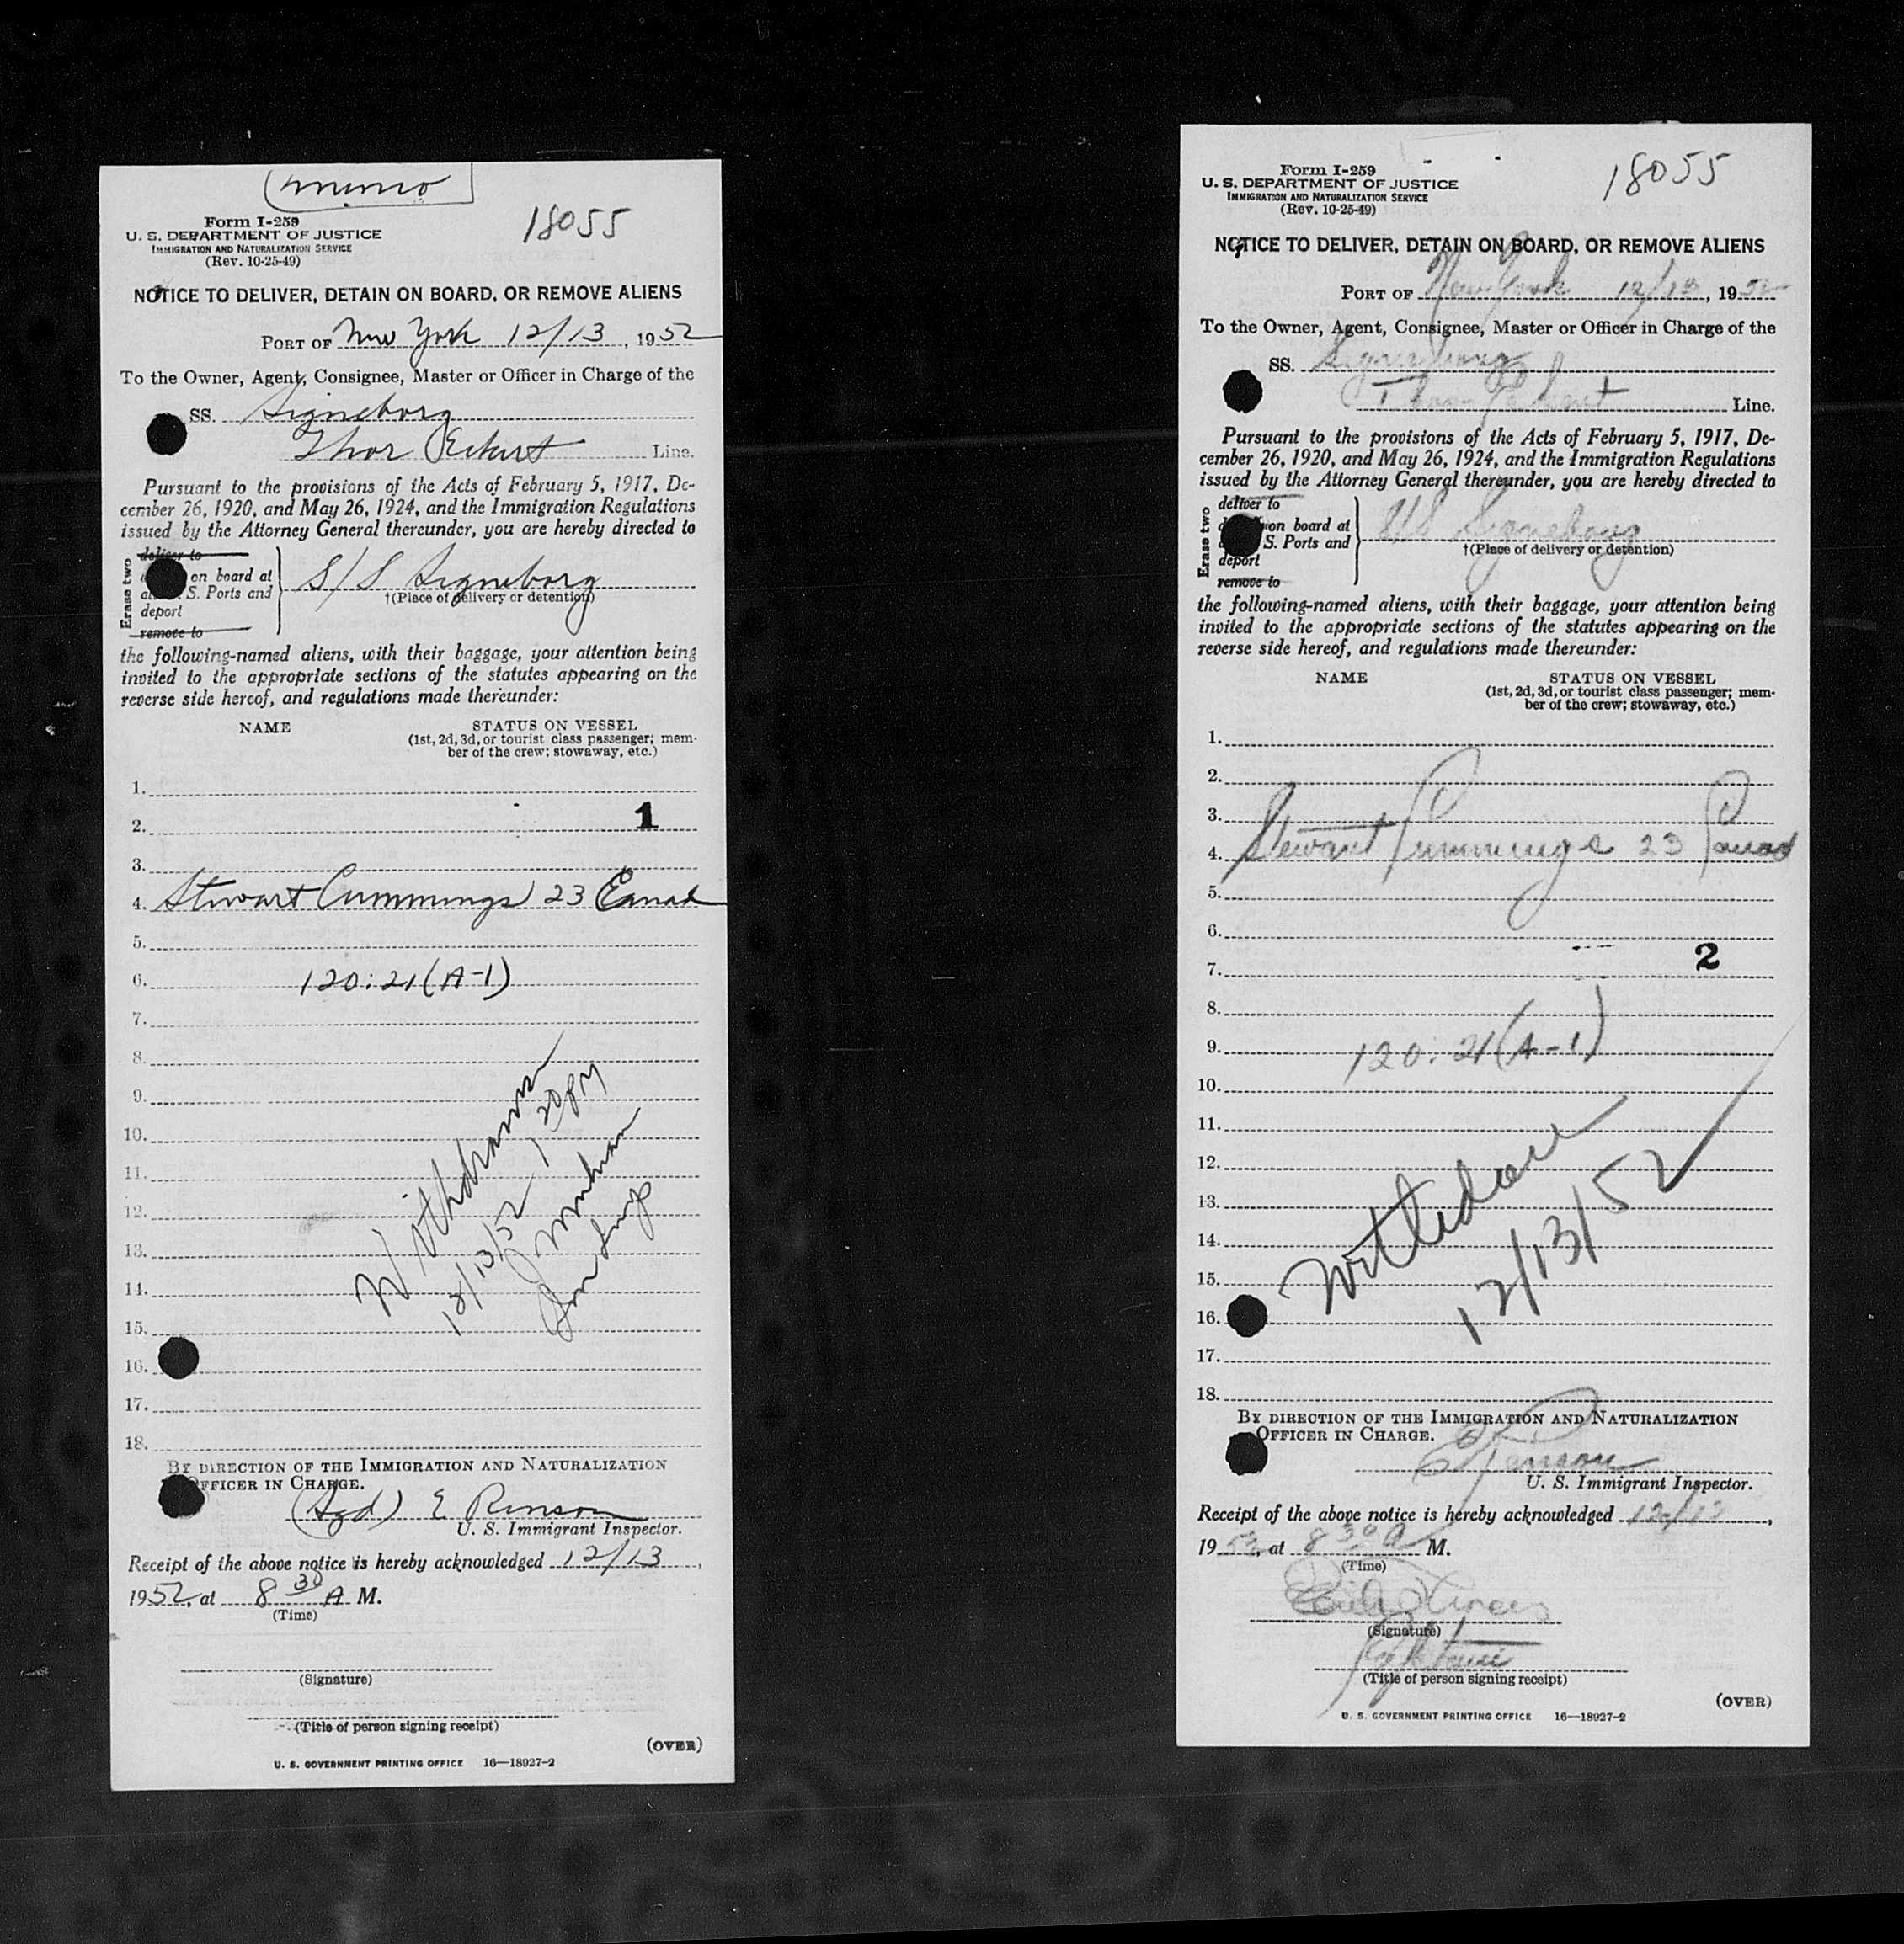 memo
Form I-259
U. S. DEPARTMENT OF JUSTICE
IMMIGRATION AND NATURALIZATION SERVICE
(Rev. 10-25-49)
18055
NOTICE TO DELIVER, DETAIN ON BOARD, OR REMOVE ALIENS
PORT OF New York 12/13, 1952
To the Owner, Agent, Consignee, Master or Officer in Charge of the
SS. Signeborg
Thor Eckert Line.
Pursuant to the provisions of the Acts of February 5, 1917, De-
cember 26, 1920, and May 26, 1924, and the Immigration Regulations
issued by the Attorney General thereunder, you are hereby directed to
Erase two
deliver to
on board at
S. Ports and
deport
remove to
S/S Signeborg
†(Place of delivery or detention)
the following-named aliens, with their baggage, your attention being
invited to the appropriate sections of the statutes appearing on the
reverse side hereof, and regulations made thereunder:
NAME STATUS ON VESSEL
(1st, 2d, 3d, or tourist class passenger; mem-
ber of the crew; stowaway, etc.)
1.
2. 1
3.
4. Stewart Cummings 23 Canad
5.
6. 120:21(A-1)
7.
8.
9.
10.
11.
12.
13.
14.
15.
16.
17.
18.
Withdrawn
12/13/52 1 20 PM
BY DIRECTION OF THE IMMIGRATION AND NATURALIZATION
OFFICER IN CHARGE.
(Sgd) E Rinson
U. S. Immigrant Inspector.
Receipt of the above notice is hereby acknowledged 12/13,
1952, at 8 30 A M.
(Time)
(Signature)
(Title of person signing receipt)
(OVER)
U. S. GOVERNMENT PRINTING OFFICE 16—18927-2
Form I-259
U. S. DEPARTMENT OF JUSTICE
IMMIGRATION AND NATURALIZATION SERVICE
(Rev. 10-25-49)
18055
NOTICE TO DELIVER, DETAIN ON BOARD, OR REMOVE ALIENS
PORT OF New York 12/13, 1952
To the Owner, Agent, Consignee, Master or Officer in Charge of the
SS. Signeborg
Thor Eckert Line.
Pursuant to the provisions of the Acts of February 5, 1917, De-
cember 26, 1920, and May 26, 1924, and the Immigration Regulations
issued by the Attorney General thereunder, you are hereby directed to
Erase two
deliver to
on board at
S. Ports and
deport
remove to
S/S Signeborg
†(Place of delivery or detention)
the following-named aliens, with their baggage, your attention being
invited to the appropriate sections of the statutes appearing on the
reverse side hereof, and regulations made thereunder:
NAME STATUS ON VESSEL
(1st, 2d, 3d, or tourist class passenger; mem-
ber of the crew; stowaway, etc.)
1.
2.
3.
4. Stewart Cummings 23 Canad
5.
6.
7. 2
8.
9. 120:21(A-1)
10.
11.
12.
13.
14.
15.
16.
17.
18.
Withdrawn
12/13/52
BY DIRECTION OF THE IMMIGRATION AND NATURALIZATION
OFFICER IN CHARGE.
E Rinson
U. S. Immigrant Inspector.
Receipt of the above notice is hereby acknowledged 12/13,
1952, at 8 30 A M.
(Time)
(Signature)
(Title of person signing receipt)
(OVER)
U. S. GOVERNMENT PRINTING OFFICE 16—18927-2